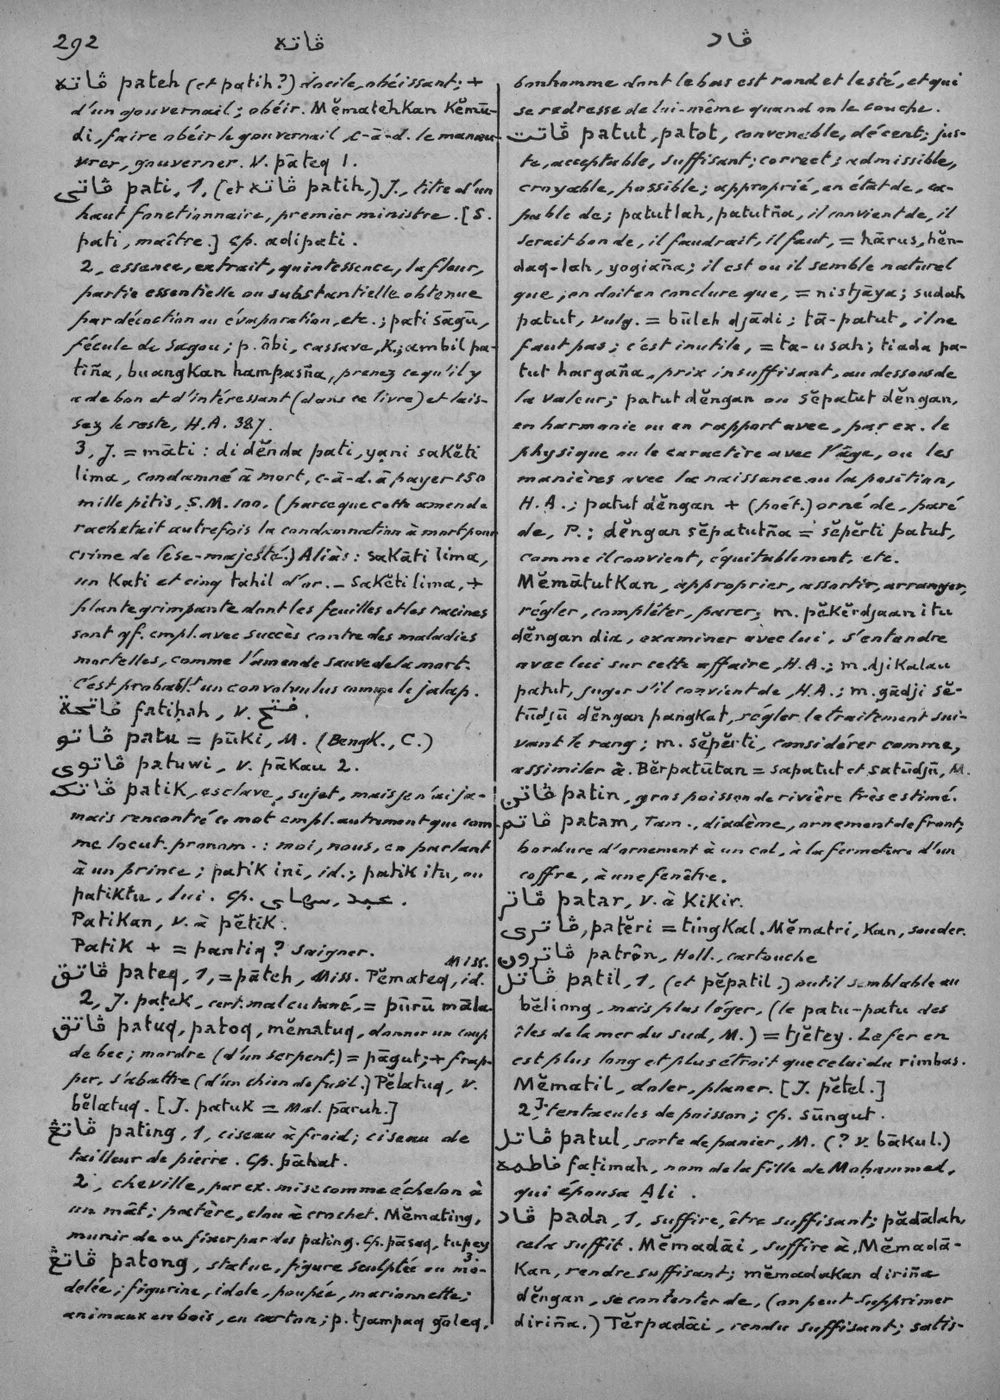 292
ڤاته
ڤاد
ڤاته pateh (et patih?) docile, obéissant; +
d'un gouvernail; obéir. Mĕmatehkan kĕmū-
di, faire obéir le gouvernail, c-à-d. le manœu-
vrer, gouverner. V. pāteq 1.
ڤاتي pati, 1, (et ڤاته patih,) J., titre d'un
haut fonctionnaire, premier ministre. [S.
pati, maître.] Cp. adipati.
2, essence, extrait, quintessence, la fleur,
partie essentielle ou substantielle obtenue
par décoction ou évaporation, etc.; pati sāgū,
fécule de sagou; p. ôbi, cassave, K.; ambil pa-
tiña, buangkan hampasña, prenez ce qu'il y
a de bon et d'intéressant (dans ce livre) et lais-
sez le reste, H.A. 387.
3, J. = māti: di dĕnda pati, yạni sakĕti
lima, condamné à mort, c-à-d. à payer 150
mille pitis, S.M. 100, (parce que cette amende
rachetait autrefois la condamnation à mort pour
crime de lèse-majesté.) Aliàs: sakāti lima,
un kati et cinq tahil d'or. _ Sakĕti lima, +
plante grimpante dont les feuilles et les racines
sont qf. empl. avec succès contre des maladies
mortelles, comme l'amende sauve de la mort.
C'est probablt. un convolvulus comme le jalap.
فاتحة fatiḥah, v. فتح.
ڤاتو patu = pūki, M. (Bengk., C.)
ڤاتوي patuwi, v. pākau 2.
ڤاتک patik, esclave, sujet, mais je n'ai ja-
mais rencontré ce mot empl. autrement que com-
me locut. pronom.: moi, nous, en parlant
à un prince; patik ini, id.; patik itu, ou
patiktu, lui. Cp. عبد, سهاي.
Patikan, v. à pĕtik.
Patik + = pantiq? saigner.
ڤاتق pateq, 1, = pāteh, Miss. Pĕmateq, id. Miss.
2, J. paṭek, cert. mal cutané, = pūrū māla.
ڤاتق patuq, patoq, mĕmatuq, donner un coup
de bec; mordre (d'un serpent.) = pāgut; + frap-
per, s'abattre (d'un chien de fusil.) Pĕlatuq, v.
bĕlatuq. [J. patuk = Mal. pāruh.]
ڤاتڠ pating, 1, ciseau à froid; ciseau de
tailleur de pierre. Cp. pāhat.
2, cheville, par ex. mise comme échelon à
un mât; patère, clou à crochet. Mĕmating,
munir de ou fixer par des pating. Cp. pāsaq, tupey 3.
ڤاتڠ patong, statue, figure sculptée ou mo-
delée; figurine, idole, poupée, marionnette;
animaux en bois, en carton; p. tjampaq gōleq,
bonhomme dont le bas est rond et lesté, et qui
se redresse de lui-même quand on le couche.
ڤاتت patut, patot, convenable, décent; jus-
te, acceptable, suffisant; correct; admissible,
croyable, possible; approprié, en état de, ca-
pable de; patutlah, patutña, il convient de, il
serait bon de, il faudrait, il faut, = hārus, hĕn-
daq-lah, yogiaña; il est ou il semble naturel
que, on doit en conclure que, = nistjāya; sudah
patut, vulg. = būleh djādi; tā-patut, il ne
faut pas; c'est inutile, = ta-usah; tiada pa-
tut hargaña, prix insuffisant, au dessous de
la valeur; patut dĕngan ou sĕpatut dĕngan,
en harmonie ou en rapport avec, par ex. le
physique ou le caractère avec l'âge, ou les
manières avec la naissance ou la position,
H.A.; patut dĕngan + (poét.) orné de, paré
de, P.; dĕngan sĕpatutña = sĕpĕrti patut,
comme il convient, équitablement, etc.
Mĕmātutkan, approprier, assortir, arranger,
régler, compléter, parer; m. pĕkĕrdjaan itu
dĕngan dia, examiner avec lui, s'entendre
avec lui sur cette affaire, H.A.; m. djikalau
patut, juger s'il convient de, H.A.; m. gādji sĕ-
tūdjū dĕngan pangkat, régler le traitement sui-
vant le rang; m. sĕpĕrti, considérer comme,
assimiler à. Bĕrpatūtan = sapatut et satūdjū, M.
ڤاتن patin, gros poisson de rivière très estimé.
ڤاتم patam, Tam., diadème, ornement de front;
bordure d'ornement à un col, à la fermeture d'un
coffre, à une fenêtre.
ڤاتر patar, v. à kikir.
ڤاتري, patĕri = tingkal. Mĕmatri, kan, souder.
ڤاترون patrôn, Holl., cartouche
ڤاتل patil, 1, (et pĕpatil.) outil semblable au
bĕliong, mais plus léger, (le patu-patu des
îles de la mer du sud, M.) = tjĕtey. Le fer en
est plus long et plus étroit que celui du rimbas.
Mĕmatil, doler, planer. [J. pĕtel.]
2, J. tentacules de poisson; cp. sūngut.
ڤاتل patul, sorte de panier, M. (? v. bākul.)
فاطمه faṭimah, nom de la fille de Moḥammed,
qui épousa Ạli.
ڤاد pada, 1, suffire, être suffisant; pădālah,
cela suffit. Mĕmadāi, suffire à, Mĕmadā-
kan, rendre suffisant; mĕmadakan diriña
dĕngan, se contenter de, (on peut supprimer
diriña.) Tĕrpadāi, rendu suffisant; satis-